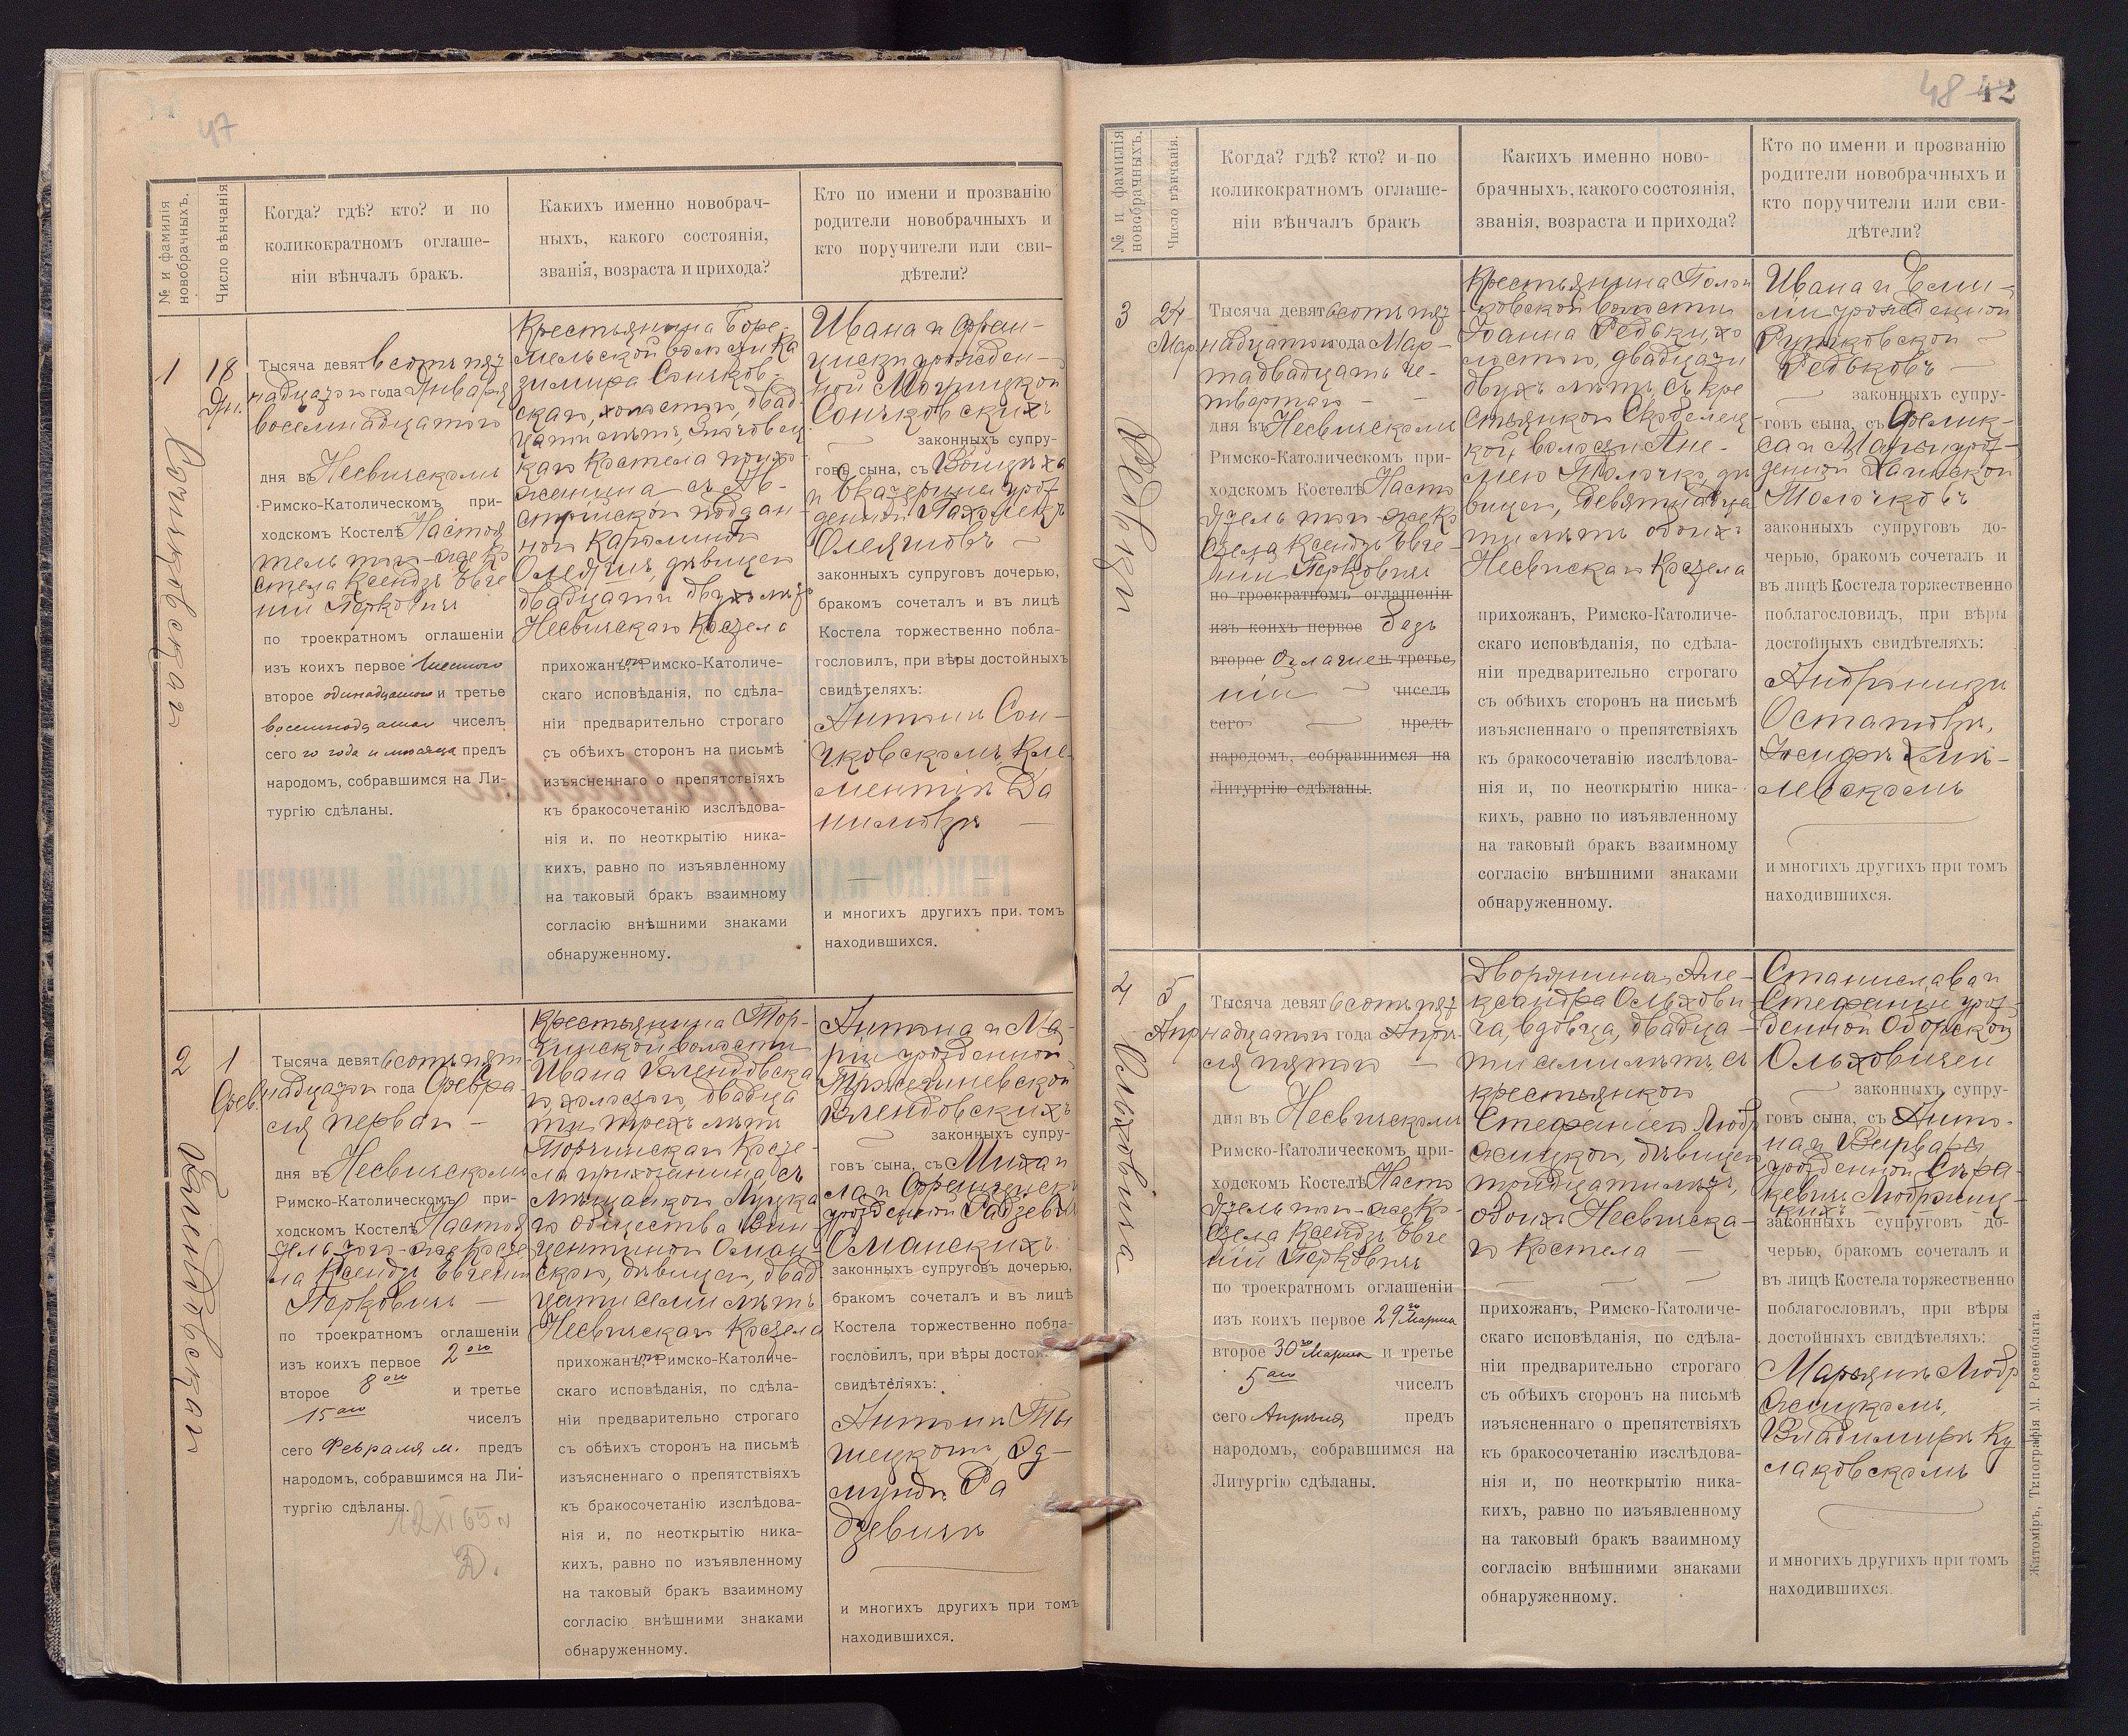 47
№ и фамилія новобрачныхъ.
Число вѣнчанія
Когда? гдѣ? кто? и по
коликократномъ оглаше-
ніи вѣнчалъ бракъ.
Какихъ именно новобрач-
ныхъ, какого состоянія,
званія, возраста и прихода?
Кто по имени и прозванію
родители новобрачныхъ и
кто поручители или сви-
дѣтели?
1
18
Ян.
Тысяча девятьсотъ пят
надцатого года Января
восемнадцатого
дня въ Несвичскомъ
Римско-Католическомъ при-
ходскомъ Костелѣ Настоя
тель того-же ко
стела Ксендзъ Евге
ній Перковичъ
по троекратномъ оглашеніи
изъ коихъ первое шестого
второе одинадцатого и третье
восемнадцатого чиселъ
сего го года и месяца предъ
народомъ, собравшимся на Ли-
тургію сдѣланы.
Крестьянина Боре-
мельской волости Ка
зимира Сончков-
скаго, холостого, двад
цати лѣтъ,
каго Костела прихо
жанина съ Ав-
стрійской поддан
ной Каролиной
Олеяшъ, дѣвицею
двадцати двухъ лѣтъ
Несвичскаго Костела
прихожанъ, Римско-Католиче-
скаго исповѣданія, по сдѣла-
ніи предварительно строгаго
съ обѣихъ сторонъ на письмѣ
изъясненнаго о препятствіяхъ
къ бракосочетанію изслѣдова-
нія и, по неоткрытію ника-
кихъ, равно по изъявленному
на таковый бракъ взаимному
согласію внѣшними знаками
обнаруженному.
Ивана и Фран-
циски урожден-
ной
Сончковскихъ
законныхъ супру-
говъ сына, съ Войцѣха
и Екатерины урож
денной
Олеяшовъ
законныхъ супруговъ дочерью,
бракомъ сочеталъ и въ лицѣ
Костела торжественно побла-
гословилъ, при вѣры достойныхъ
свидѣтеляхъ:
Антонъ Сон-
чковскомъ, Кле-
ментій Да
ниловъ
и многихъ другихъ при томъ
находившихся.
Сончковскаго
2
1
Фев.
Тысяча девятьсотъ пят
надцатого года Февра-
ля перваго
дня въ Несвичскомъ
Римско-Католическомъ при-
ходскомъ Костелѣ Настоя
тель того-же Косте
ла Ксендзъ Евгеній
Перковичъ
по троекратномъ оглашеніи
изъ коихъ первое 2 ого
второе 8 ого и третье
15 аго чиселъ
сего Февраля м. предъ
народомъ, собравшимся на Ли-
тургію сдѣланы.
12 XI 65
Крестьянина Тор-
чинской волости
Ивана Клендовска
го, холостого, двадца
ти трехъ лѣтъ
Торчинскаго Косте-
ла прихожанина, съ
мѣщанкою Луцка
го общества Вин-
центиною Оман-
скою, дѣвицею, двад
цати семи лѣтъ
Несвичскаго Костела
прихожанъ, Римско-Католиче-
скаго исповѣданія, по сдѣла-
ніи предварительно строгаго
съ обѣихъ сторонъ на письмѣ
изъясненнаго о препятствіяхъ
къ бракосочетанію изслѣдова-
нія и, по неоткрытію ника-
кихъ, равно по изъявленному
на таковый бракъ взаимному
согласію внѣшними знаками
обнаруженному.
Антона и Ма-
ріи урожденной
Клендовскихъ
законныхъ супру-
говъ сына, съ Михаи
ла и Францишки
урожденной Радзевичъ
Оманскихъ
законныхъ супруговъ дочерью,
бракомъ сочеталъ и въ лицѣ
Костела торжественно побла-
гословилъ, при вѣры достой
свидѣтеляхъ:
Антонъ Ты
шецкомъ, Эд-
мундъ Ра
дзевичъ
и многихъ другихъ при томъ
находившихся.
Клендовскаго
48 42
№ и фамилія новобрачныхъ.
Число вѣнчанія.
Когда? гдѣ? кто? и по
коликократномъ оглаше-
ніи вѣнчалъ бракъ
Какихъ именно ново-
брачныхъ, какого состоянія,
званія, возраста и прихода?
Кто по имени и прозванію
родители новобрачныхъ и
кто поручители или сви-
дѣтели?
3
24
Мар
Тысяча девятьсотъ пят
надцатого года Мар-
та двадцать че-
твертаго
дня въ Несвичскомъ
Римско-Католическомъ при-
ходскомъ Костелѣ Насто
ятель того-же ко
стела Ксендзъ Евге
ній Перковичъ
по троекратномъ оглашеніи
изъ коихъ первое безъ
второе оглаше и третье
нія чиселъ
сего предъ
народомъ, собравшимся на
Литургію сдѣланы.
Крестьянина Полон
ковской волости
Іоанна Редьки, хо
лостого, двадцати
двухъ лѣтъ, съ кре
стьянкою Скобелец
кой волости Ане-
лею Толочко, дѣ
вицею, девятнадца
ти лѣтъ обоихъ
Несвичскаго Костела
прихожанъ, Римско-Католиче-
скаго исповѣданія, по сдѣла-
ніи предварительно строгаго
съ обѣихъ сторонъ на письмѣ
изъясненнаго о препятствіяхъ
къ бракосочетанію изслѣдова-
нія и, по неоткрытію ника-
кихъ, равно по изъявленному
на таковый бракъ взаимному
согласію внѣшними знаками
обнаруженному.
Ивана и Еми-
ліи урожденной
Рутковской
Редьковъ
законныхъ супру-
говъ сына, съ Феликса
и Маріи урож-
денной
Толочковъ
законныхъ супруговъ до-
черью, бракомъ сочеталъ и
въ лицѣ Костела торжественно
поблагословилъ, при вѣры
достойныхъ свидѣтеляхъ:
Остаповъ,
Іосифъ Хми-
левскомъ
и многихъ другихъ при томъ
находившихся.
Редьки
4
5
Апр
Тысяча девятьсотъ пят
надцатого года Апрѣ-
ля пятого
дня въ Несвичскомъ
Римско-Католическомъ при-
ходскомъ Костелѣ Насто
ятель того-же Ко-
стела Ксендзъ Евге
ній Перковичъ
по троекратномъ оглашеніи
изъ коихъ первое 29го Марта
второе 30го Марта и третье
5 аго чиселъ
сего Апрѣля предъ
народомъ, собравшимся на
Литургію сдѣланы.
Дворянина Але-
ксандра Ольхови
ча, вдовца, двадца-
ти семи лѣтъ, съ
крестьянкою
Стефаніею Любр
жицкою, дѣвицею
тридцати лѣтъ,
обоихъ Несвичска-
го Костела
прихожанъ, Римско-Католиче-
скаго исповѣданія, по сдѣла-
ніи предварительно строгаго
съ обѣихъ сторонъ на письмѣ
изъясненнаго о препятствіяхъ
къ бракосочетанію изслѣдова-
нія и, по неоткрытію ника-
кихъ, равно по изъявленному
на таковый бракъ взаимному
согласію внѣшними знаками
обнаруженному.
Станислава и
Стефаніи урож-
денной Оборской
Ольховичей
законныхъ супру-
говъ сына, съ Анто-
на и Варвары
урожденной
Любржиц-
кихъ
законныхъ супруговъ до-
черью, бракомъ сочеталъ и
въ лицѣ Костела торжественно
поблагословилъ, при вѣры
достойныхъ свидѣтеляхъ:
Марьянъ Любр
жицкомъ,
Владиміръ Ку
лаковскомъ
и многихъ другихъ при томъ
находившихся.
Ольховича
Житоміръ, Типографія М. Розенблата.